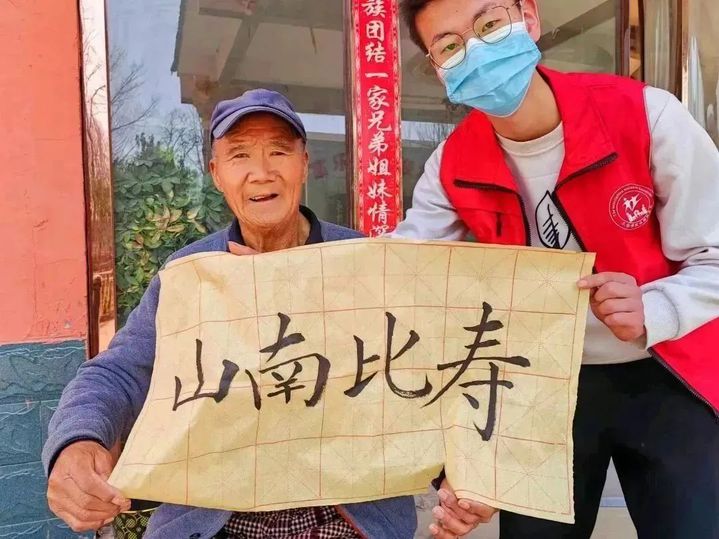 族团结一家兄弟姐妹情深
寿比南山